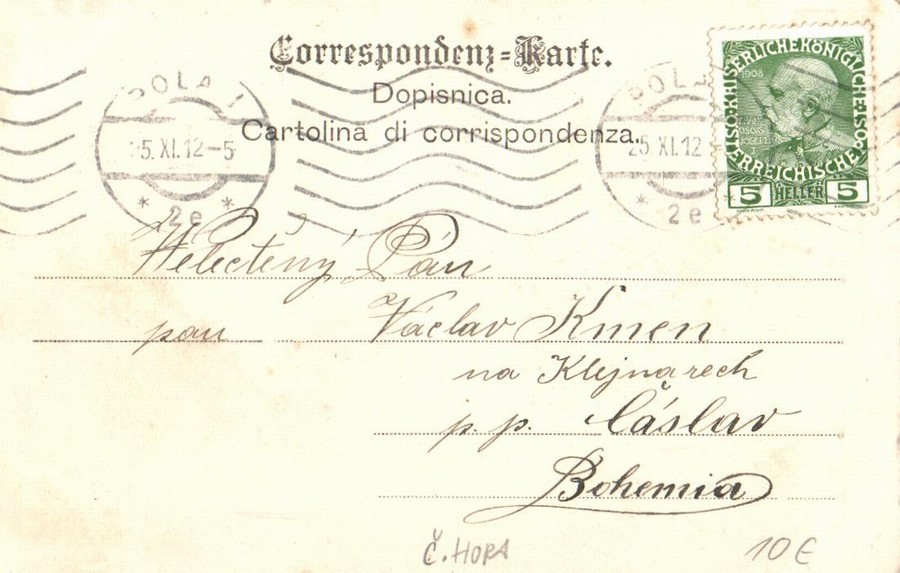 Correspondenz-Karte.
Dopisnica.
Cartolina di corrispondenza.
POLA 1
25.XI.12-5
* 2e *
POLA
25 XI.12
* 2e
KAISERLICHE KÖNIGLICHE ÖSTERREICHISCHE
1908
FRANZ JOSEF I
5 HELLER 5
Velectěný Pán
pan Václav Kmen
na Klejnarech
p. p. Čáslav
Bohemia
Č. HORA
10 €